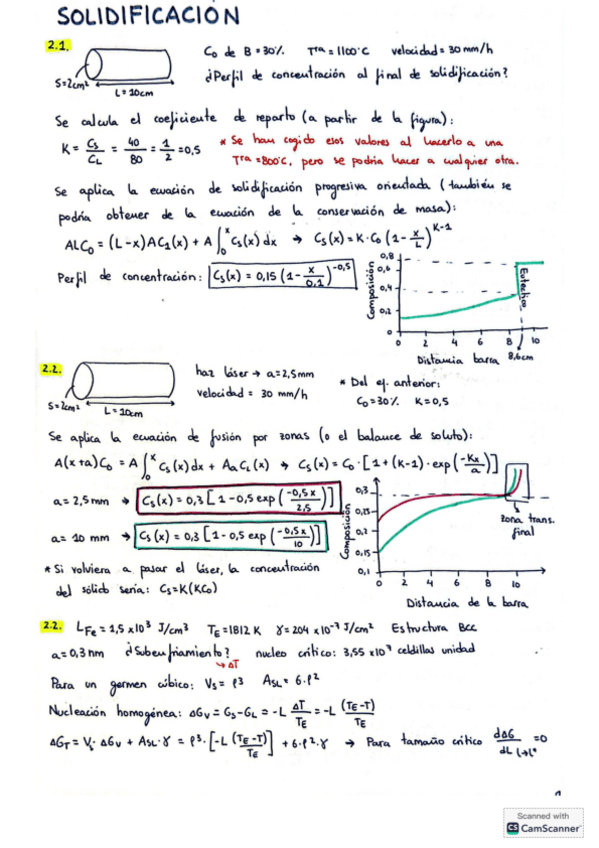 SOLIDIFICACIÓN
2.1. C₀ de B = 30% Tᵃ = 1100°C velocidad = 30 mm/h
S=2cm² L=10cm ¿Perfil de concentración al final de solidificación?
Se calcula el coeficiente de reparto (a partir de la figura):
K = Cs/CL = 40/80 = 1/2 = 0,5 * Se han cogido esos valores al hacerlo a una
Tra = 800°C, pero se podría hacer a cualquier otra.
Se aplica la ecuación de solidificación progresiva orientada (también se
podría obtener de la ecuación de la conservación de masa):
ALC₀ = (L-x)AC₁(x) + A∫₀ˣ Cs(x)dx → Cs(x) = K·C₀(1 - x/L)^(K-1)
Perfil de concentración: Cs(x) = 0,15 (1 - x/0,1)^(-0,5)
Composición
0,8
0,6
0,4
0,2
0
Eutéctico
0 2 4 6 8 10
Distancia barra 8,6cm
2.2. haz láser → a=2,5mm * Del ej. anterior:
velocidad = 30 mm/h C₀=30% K=0,5
S=2cm² L=10cm
Se aplica la ecuación de fusión por zonas (o el balance de soluto):
A(x+a)C₀ = A∫₀ˣ Cs(x)dx + AaCL(x) → Cs(x) = C₀·[1+(K-1)·exp(-Kx/a)]
a=2,5mm → Cs(x) = 0,3[1-0,5 exp(-0,5x/2,5)]
a=10 mm → Cs(x) = 0,3[1-0,5exp(-0,5x/10)]
Composición
0,3
0,25
0,2
0,15
0,1
zona trans.
final
0 2 4 6 8 10
Distancia de la barra
* Si volviera a pasar el láser, la concentración
del sólido sería: Cs=K(KC₀)
2.2. LFe = 1,5 x10³ J/cm³ TE=1812 K γ=204 x10⁻⁷ J/cm² Estructura BCC
a=0,3nm ¿Subenfriamiento? nucleo crítico: 3,55 x10³ celdillas unidad
↳ ΔT
Para un germen cúbico: Vs = l³ ASL = 6·l²
Nucleación homogénea: ΔGv = Gs-GL = -L ΔT/TE = -L (TE-T)/TE
ΔGT = V·ΔGv + ASL·γ = l³·[-L (TE-T)/TE] + 6·l²·γ → Para tamaño crítico dΔG/dL |l→l* =0
1
Scanned with
CS CamScanner